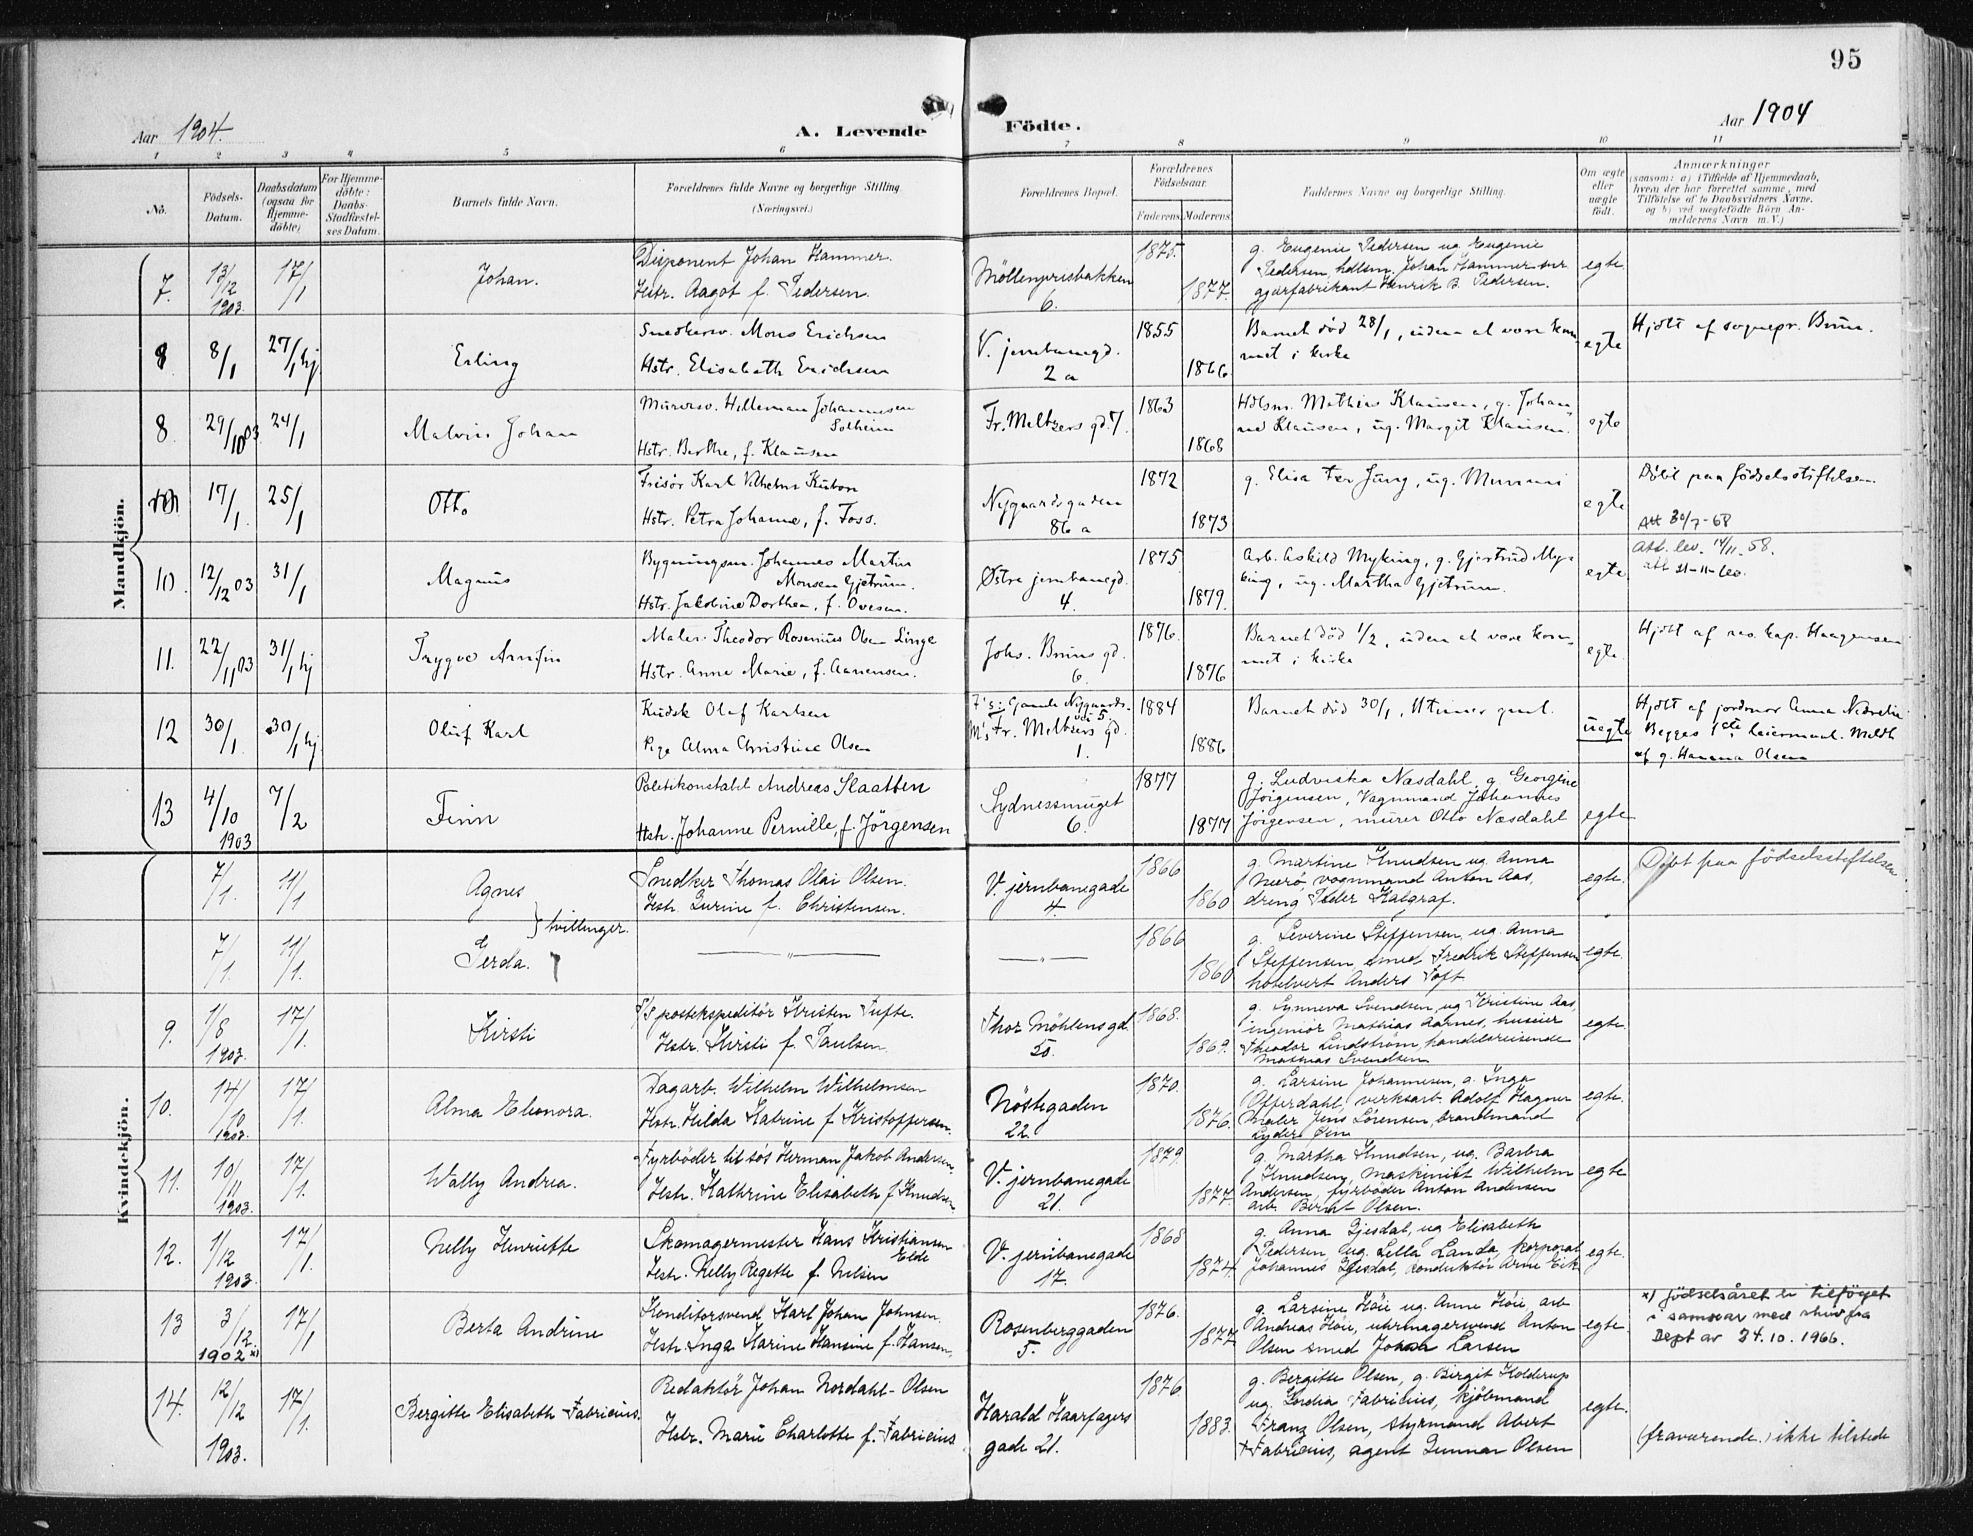 95
Aar 1904.
A. Levende Födte.
Aar 1904
1 2 3 4 5 6 7 8 9 10 11
No.
Födsels-Datum.
Daabsdatum (ogsaa for Hjemme-döbte)
For Hjemme-döbte: Daabs-Stadfæstel-ses Datum.
Barnets fulde Navn.
Forældrenes fulde Navne og borgerlige Stilling (Næringsvei.)
Forældrenes Bopæl.
Forældrenes Födselsaar.
Faderens Moderens
Faddernes Navne og borgerlige Stilling.
Om ægte eller uægte födt.
Anmærkninger
(saasom: a) i Tilfælde af Hjemmedaab,
hvem der har forrettet samme, med
Tilföielse af to Daabsvidners Navne,
og b) ved uægtefödte Börn An-
melderens Navn m. V.)
Mandkjön.
7. 13/12 1903. 17/1 Johan.
Disponent Johan Hammer.
Hstr. Aagot f. Pedersen.
Möllenprisbakken 6.
1875. 1877.
g. Eugenie Pedersen ug. Eugenie
Pedersen, hdlsm. Johan Hammer snr
gjørfabrikant Henrik B. Pedersen.
egte.
8 8/1 27/1 hj Erling
Snedkersv. Mons Erichsen
Hstr. Elisabeth Erichsen
V. jernbanegd. 2 a
1855 1866
Barnet död 28/1, uden at være kom
met i kirke
egte
Hjdt af sognepr. Brun.
8. 29/10 03 24/1 Malvin Johan
Murersv. Helleman Johannesen Solheim
Hstr. Berthe, f. Klausen
Fr. Meltzers gd 7.
1863 1868
Hdlsm. Mathias Klausen, g. Johan
ne Klausen, ug. Margit Klausen.
egte
17/1. 25/1 Otto
Frisör Karl Vilhelm Kubon
Hstr. Petra Johanne, f. Foss.
Nygaardsgaden 86 a
1872 1873
g. Elisa Ter Jung, ug.
egte
Döbt paa födselsstiftelsen.
Att 30/7-68
10. 12/12 03 31/1 Magnus
Bygningsm. Johannes Martin
Monsen Gjetrum.
Hstr. Jakobine Dorthea, f. Ovesen.
Østre jernbanegd. 4.
1875 1879.
Arb. Askild Myking, g. Gjertrud My-
king, ug. Martha Gjetrum.
egte
Att. lev. 14/11. 58.
att 21-11-60.
11. 22/11 03 31/1 hj Trygve Arnfin
Maler Theodor Rosenius Olsen Linge
Hstr. Anne Marie, f. Aanensen.
Johs. Bruns gd. 6.
1876. 1876
Barnet död 1/2, uden at være kom-
met i kirke
egte.
Hjdt af res. kap. Haagensen
12 30/1. 30/1 hj Oluf Karl
Kudsk Olaf Karlsen
Pige Alma Christine Olsen
F's: Gamle Nygaards-
vei 5
M's Fr. Meltzers gd. 1.
1884 1886
Barnet död 30/1, 11 timer gml.
uegte
Hjdt af jordmor Anna
Begges 1ste leiermaal. Meldt
af g. Hanna Olsen
13 4/10 1903 7/2 Finn
Politikonstabl Andreas Slaatten
Hstr. Johanne Pernille, f. Jörgensen
Sydnessmuget 6.
1877 1877
g. Ludviska Næsdahl, g. Georgine
Jörgensen, Vognmand Johannes
Jörgensen, murer Otto Næsdahl
egte
Kvindekjön.
7/1. 11/1 Agnes } tvillinger.
Snedker Thomas Olai Olsen.
Hstr. Gurine f. Christensen.
V. jernbanegade 4.
1866 1860
g. Martine Knudsen ug. Anna
Nerö, vognmand Anton Aas,
dreng Peder Kalgraf.
egte.
Döbt paa födselsstiftelsen
7/1. 11/1. Gerda.
— " —
— " —
1866 1860
g. Severine Steffensen, ug. Anna
Steffensen smed Fredrik Steffensen
hotelvert Anders Toft
egte.
9. 1/8 1903 17/1. Kirsti
S/S postekspeditör Kristen Tufte.
Hstr. Kirsti f. Paulsen.
Thor Möhlens gd. 50.
1868. 1869.
g. Synneva Svendsen, ug Kristine Aas,
ingeniör Mathias Aarnes, huseier
Theodor Lindström, handelsreisende
Mathias Svendsen
egte.
10. 14/10 1903. 17/1. Alma Elenora.
Dagarb. Wilhelm Wilhelmsen
Hstr. Hilda Katrine f. Kristoffersen.
Nöstegaden 22.
1870. 1876.
g. Larsine Johannesen, g. Inga
Offerdahl, verksarb. Adolf Hagner
maler Jens Sörensen, brandmand
Lyder
egte.
11. 10/11 1903. 17/1. Wally Andrea.
Fyrböder til sös Herman Jakob Andersen.
Hstr. Kathrine Elisabeth f. Knudsen
V. jernbanegade 21.
1879. 1877.
g. Martha Knudsen, ug. Barbra
Knudsen, maskinist Wilhelm
Andersen, fyrböder Anton Andersen
arb. Bernt Olsen.
egte
12. 1/12 1903. 17/1. Nelly Henriette
Skomagermester Hans Kristiansen Eide
Hstr. Nelly Regette f. Nilsen
V. jernbanegade 17.
1868 1874.
g. Anna Gjesdal, ug Elisabeth
Pedersen, ug. Lella Landa, korporal
Johannes Gjesdal, konduktör Arne Eik
egte.
13 3/12. 1902 x) 17/1 Berta Andrine
Konditorsvend Karl Johan Johnsen.
Hstr. Inga Karine Hansine f. Hansen.
Rosenberggaden 5.
1876. 1877
g. Larsine Höie ug. Anne Höie arb
Andreas Höie, uhrmagersvend Anton
Olsen smed Johan Larsen
egte.
x) födselsåret er tilföyet
i samsvar med skriv fra
Dept av 24.10.1966.
14. 12/12 1903. 17/1. Bergitte Elisabeth Fabricius.
Redaktör Johan Nordahl-Olsen
Hstr. Marie Charlotte f. Fabricius
Harald Haarfagers gade 21.
1876. 1883.
g. Bergitte Olsen, g. Birgit Holderup
ug. Fabricius, kjöbmand
Franz Olsen, styrmand Abert
Fabricius, agent Gunnar Olsen
egte.
(fraværende.) ikke tilstede